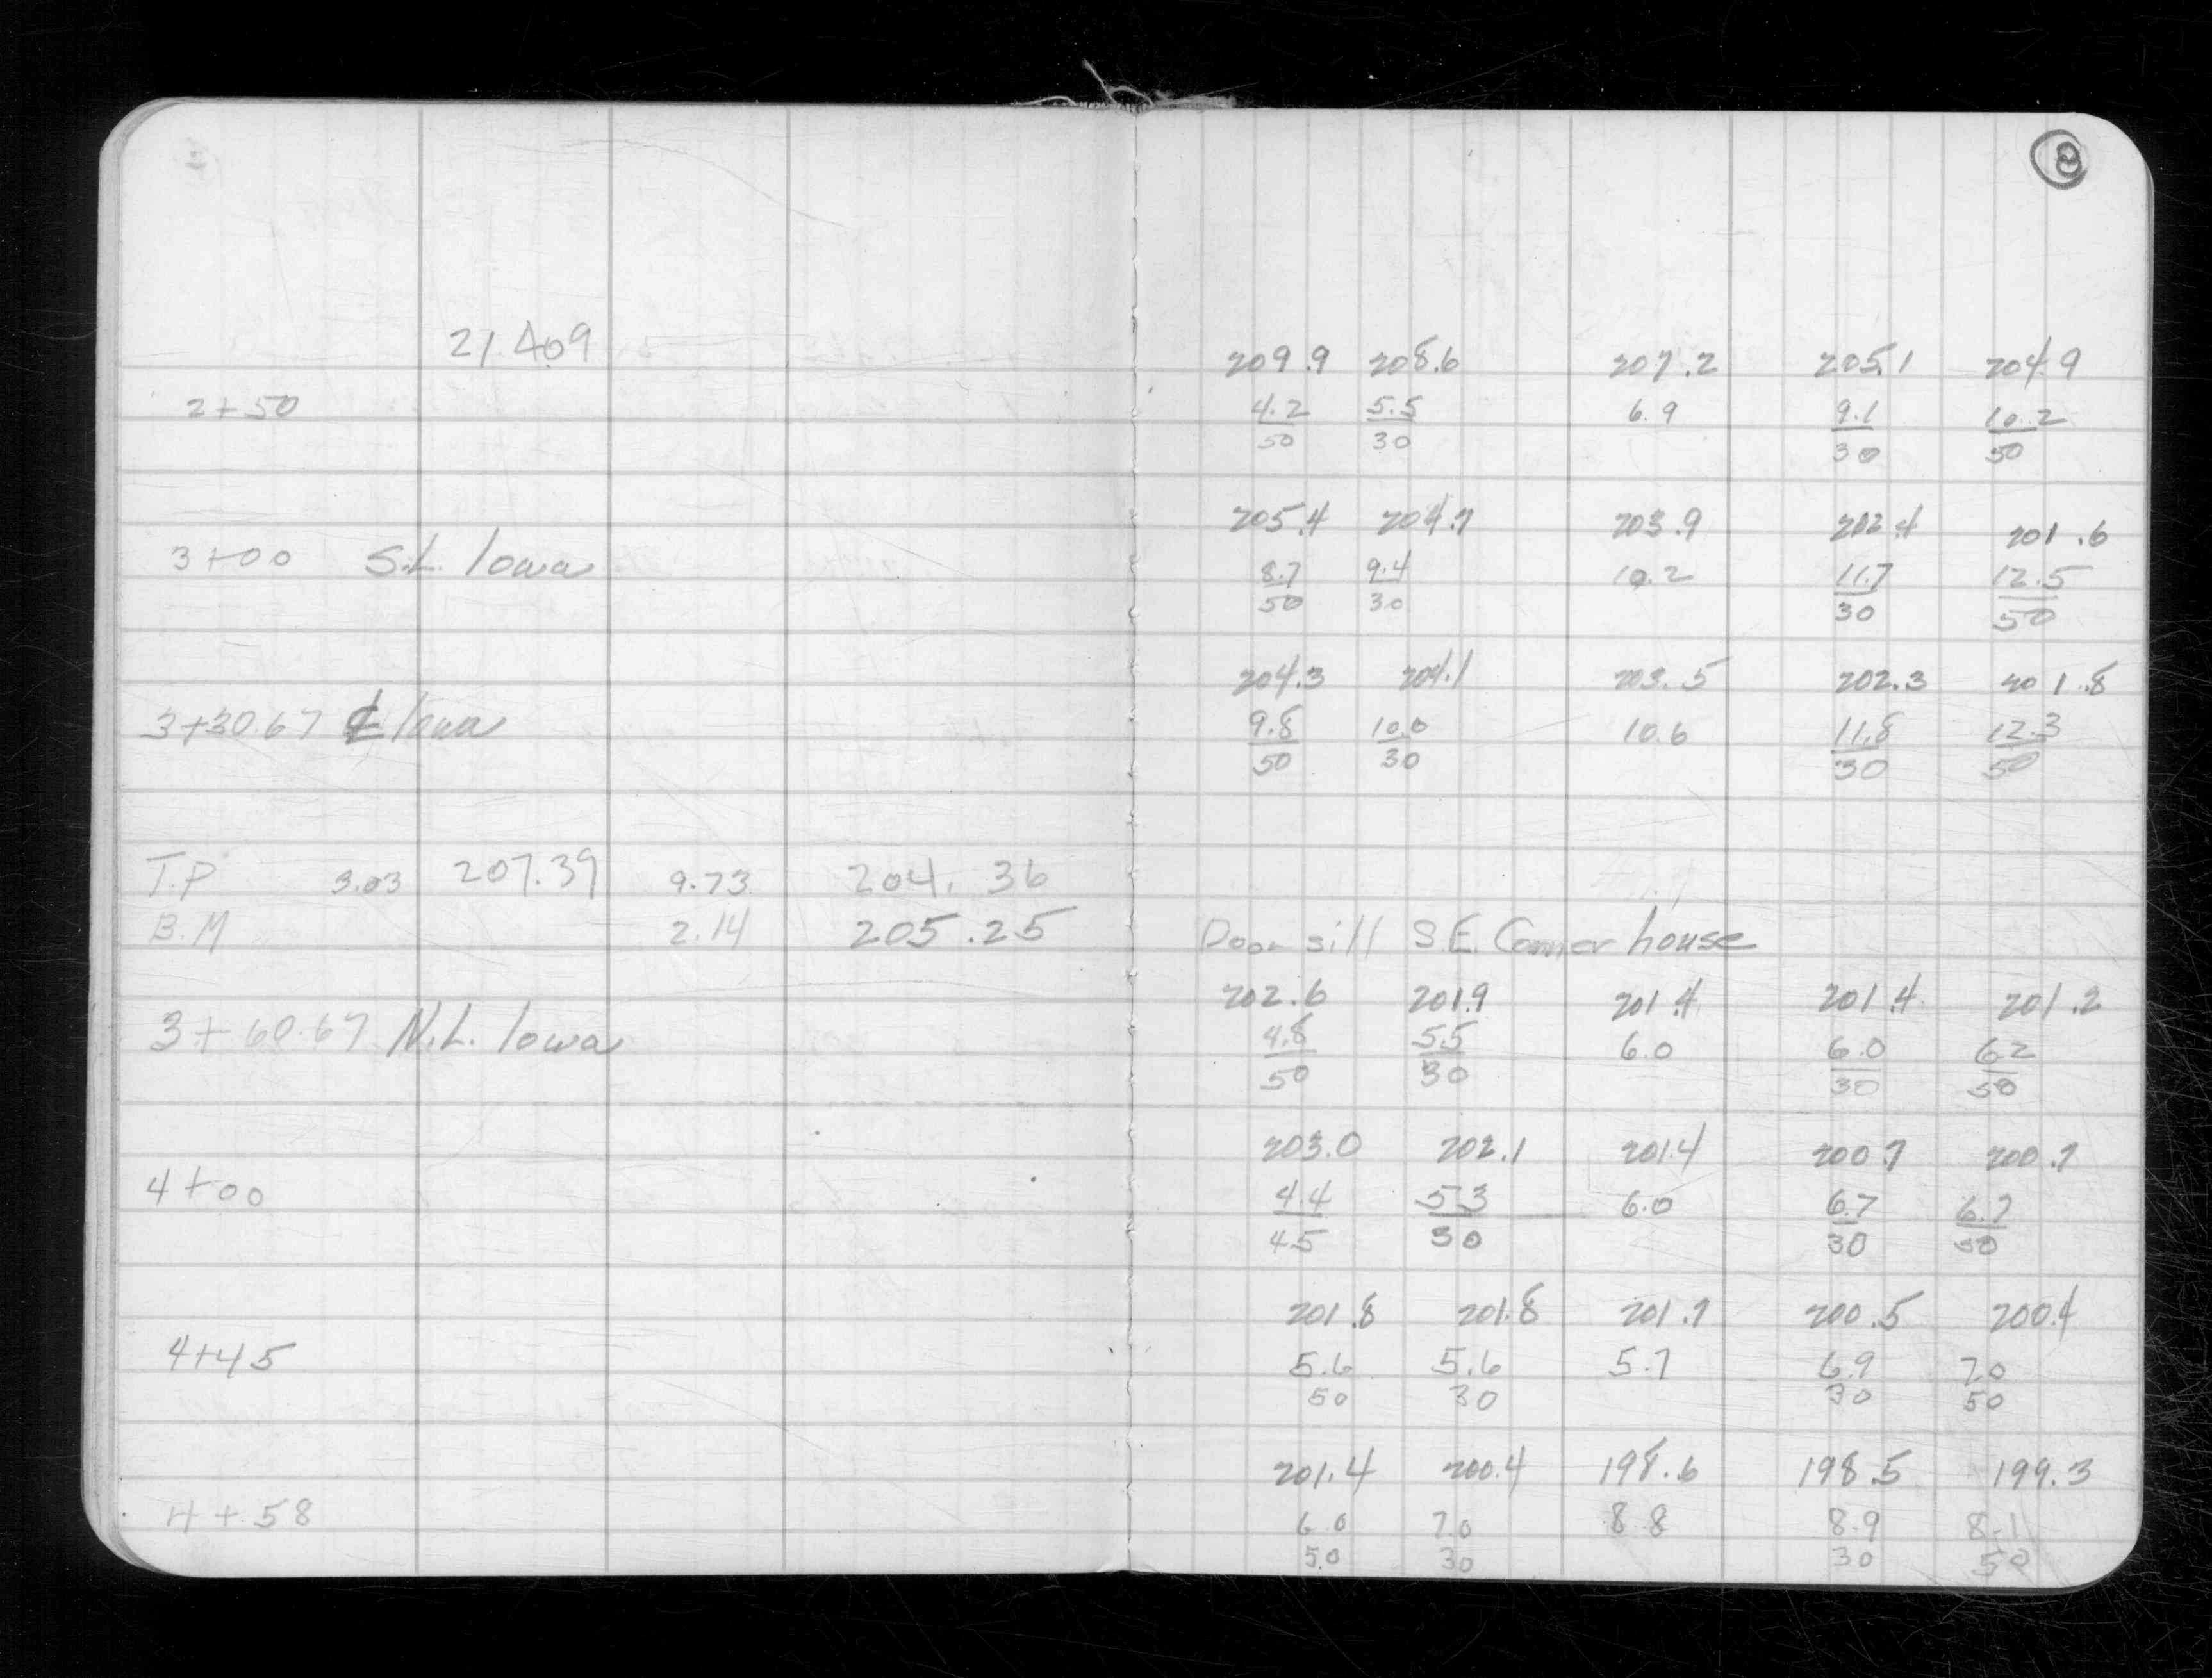 8
21.409
209.9 208.6 207.2 205.1 204.9
2+50 4.2 5.5 6.9 9.1 10.2
50 30 30 50
205.4 204.7 203.9 202.4 201.6
3+00 S.L. Iowa 8.7 9.4 10.2 11.7 12.5
50 30 30 50
204.3 204.1 203.5 202.3 201.8
3+30.67 ℄ Iowa 9.8 10.0 10.6 11.8 12.3
50 30 30 50
T.P 3.03 207.39 9.73 204.36
B.M 2.14 205.25 Door sill S.E. Corner house
202.6 201.9 201.4 201.4 201.2
3+60.67 N.L. Iowa 4.8 5.5 6.0 6.0 6.2
50 30 30 50
203.0 202.1 201.4 200.7 200.7
4+00 4.4 5.3 6.0 6.7 6.7
45 30 30 50
201.8 201.8 201.7 200.5 200.4
4+45 5.6 5.6 5.7 6.9 7.0
50 30 30 50
201.4 200.4 198.6 198.5 199.3
4+58 6.0 7.0 8.8 8.9 8.1
50 30 30 50